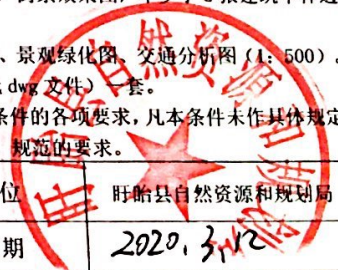 、景观绿化图、交通分析图（1：500）。
dwg 文件）一套。
条件的各项要求，凡本条件未作具体规定
规范的要求。
位
盱眙县自然资源和规划局
期
2020.3.12
盱眙县自然资源和规划局